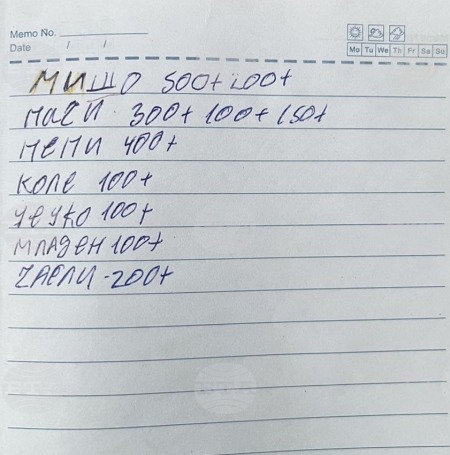 Memo No.
Date / /
Mo Tu We Th Fr Sa Su
МИШО 500+ 200+
МАСИ 300+ 100+ 150+
МЕМИ 400+
КОЛЕ 100+
ЧЕЧКО 100+
МЛАДЕН 100+
200+